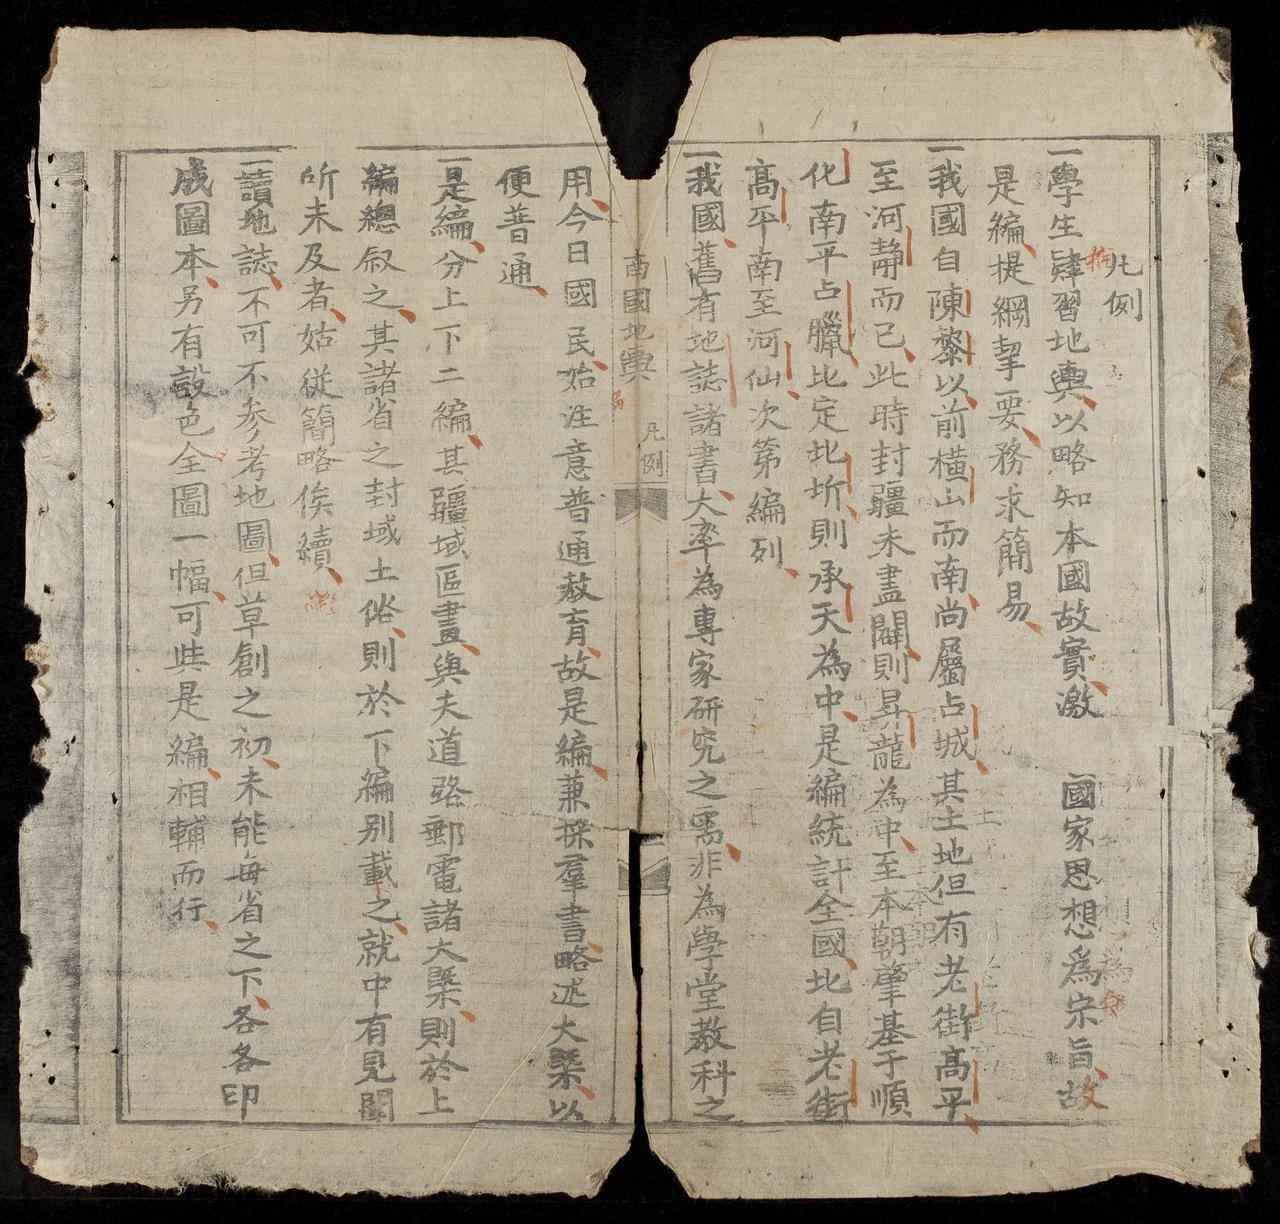 凡例
一學生肄習地輿以略知本國故實激 國家思想爲宗旨故
是編提綱挈要務求簡易
一我國自陳黎以前橫山而南尚屬占城其土地但有老街高平
至河靜而已此時封疆未盡闢則昇龍為中至本朝肇基于順
化南平占臘北定北圻則承天為中是編統計全國北自老街
高平南至河仙次第編列
一我國舊有地誌諸書大率為專家研究之需非為學堂教科之
南國地輿 凡例
用今日國民始注意普通教育故是編兼採羣書略述大槩以
便普通
一是編分上下二編其疆域區畫與夫道路郵電諸大槩則於上
編總叙之其諸省之封域土俗則於下編別載之就中有見聞
所未及者姑從簡略俟續
一讀地誌不可不参考地圖但草創之初未能每省之下各各印
成圖本另有設色全圖一幅可與是編相輔而行